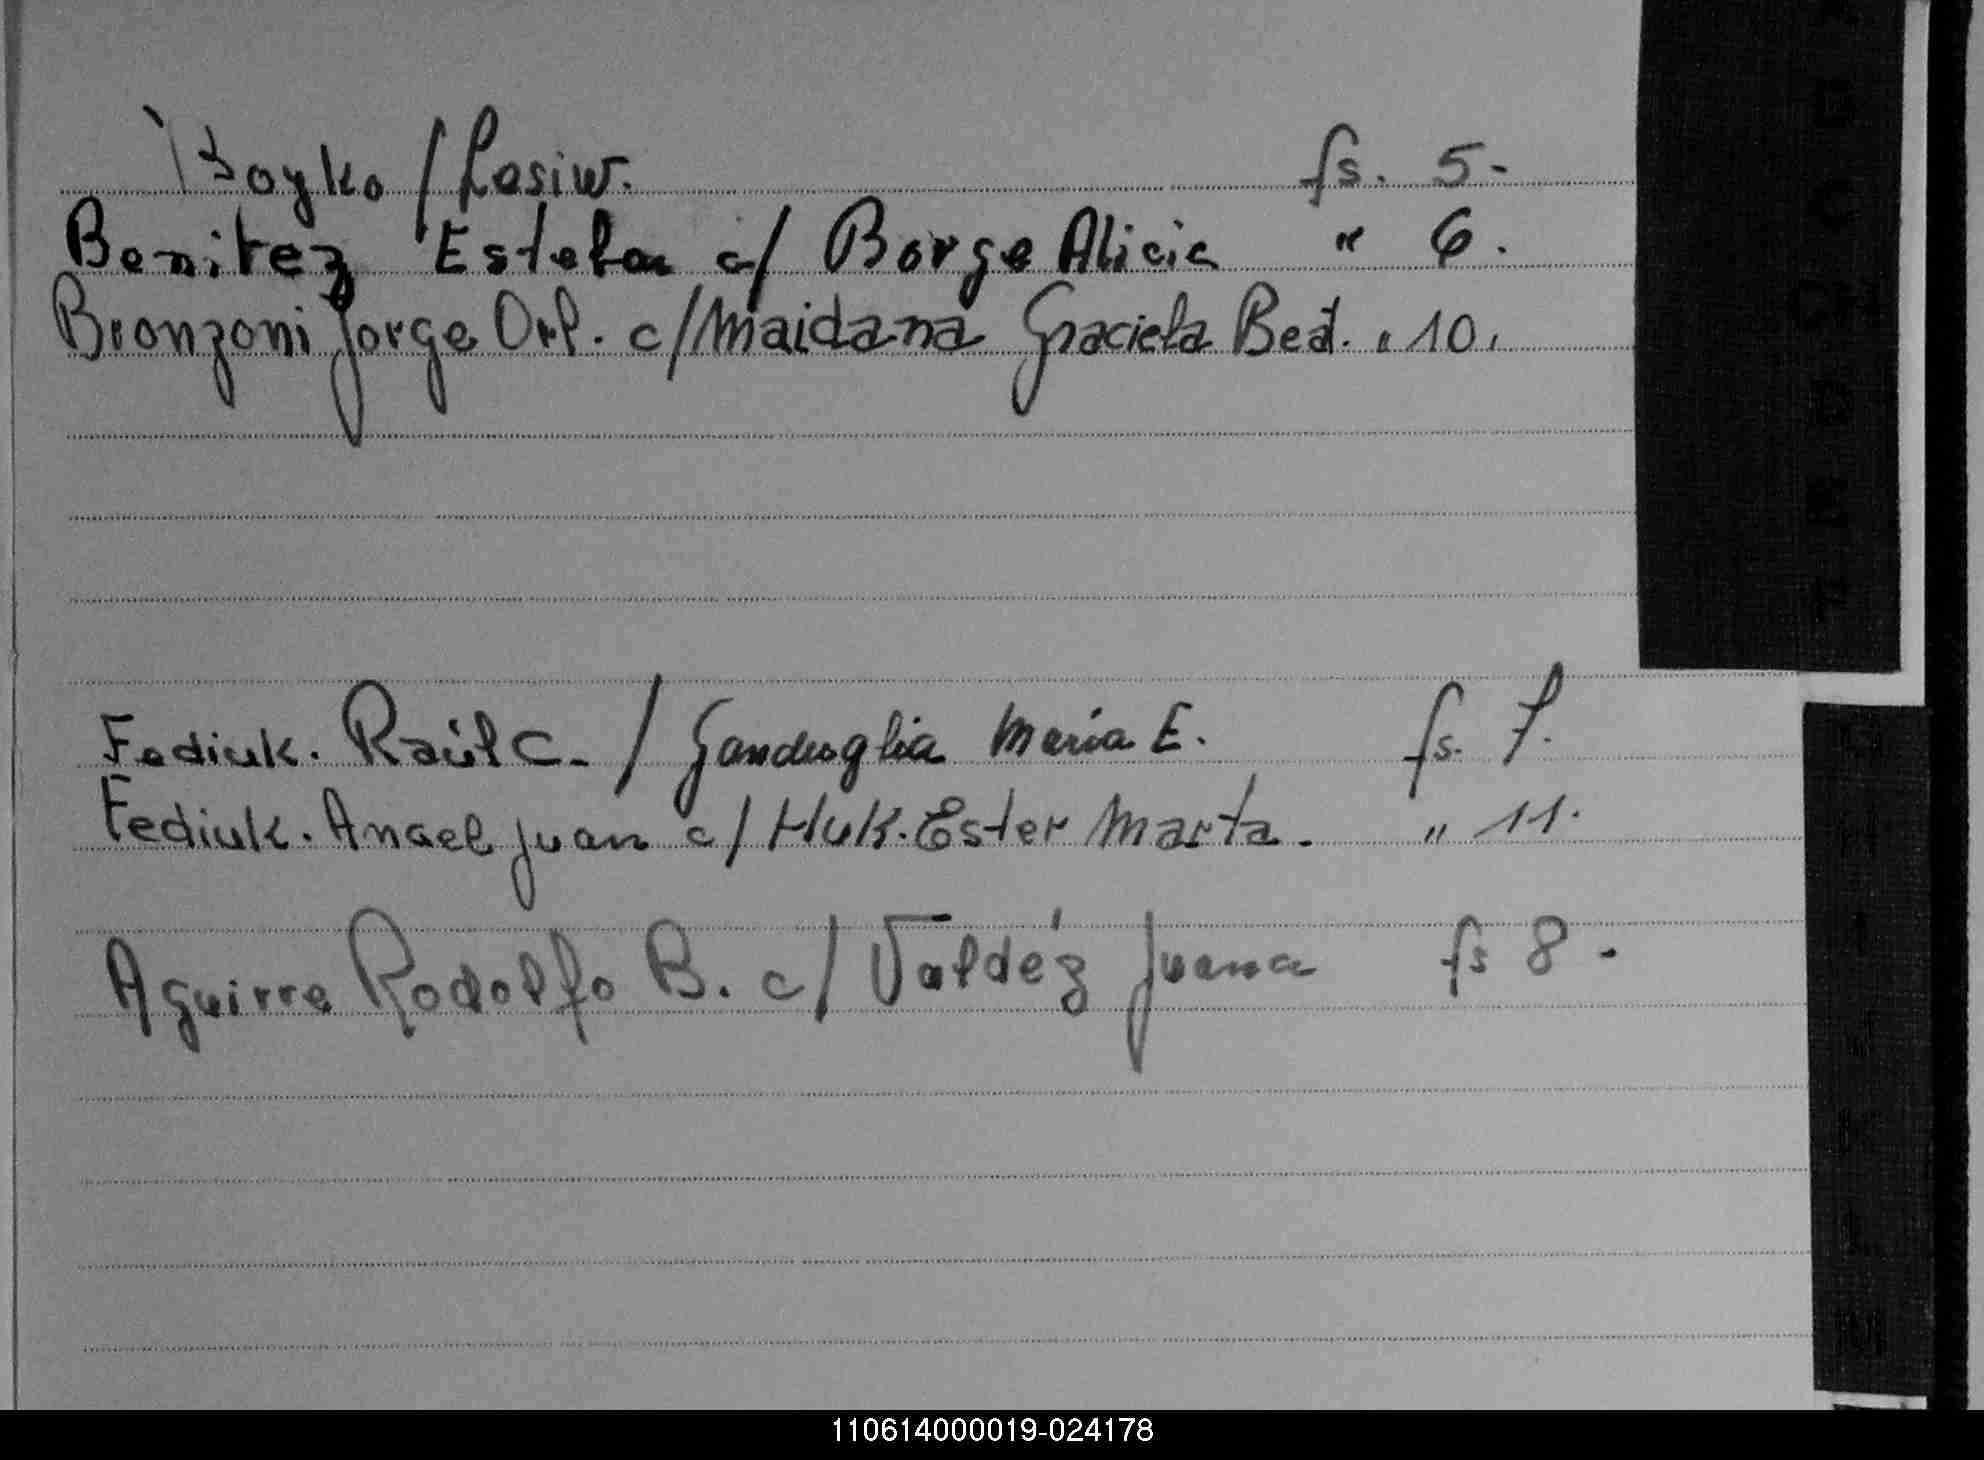 Boyko / Losiw. fs. 5-
Benitez Esteban c/ Borge Alicia " 6.
Bronzoni Jorge Orl. c/ Maidana Graciela Beat. " 10.
Fediuk. Raúl C. / Ganduglia María E. fs. 7.
Fediuk. Angel Juan c/ Huk. Ester Marta. " 11.
Aguirre Rodolfo B. c/ Valdéz Juana fs 8.
110614000019-024178